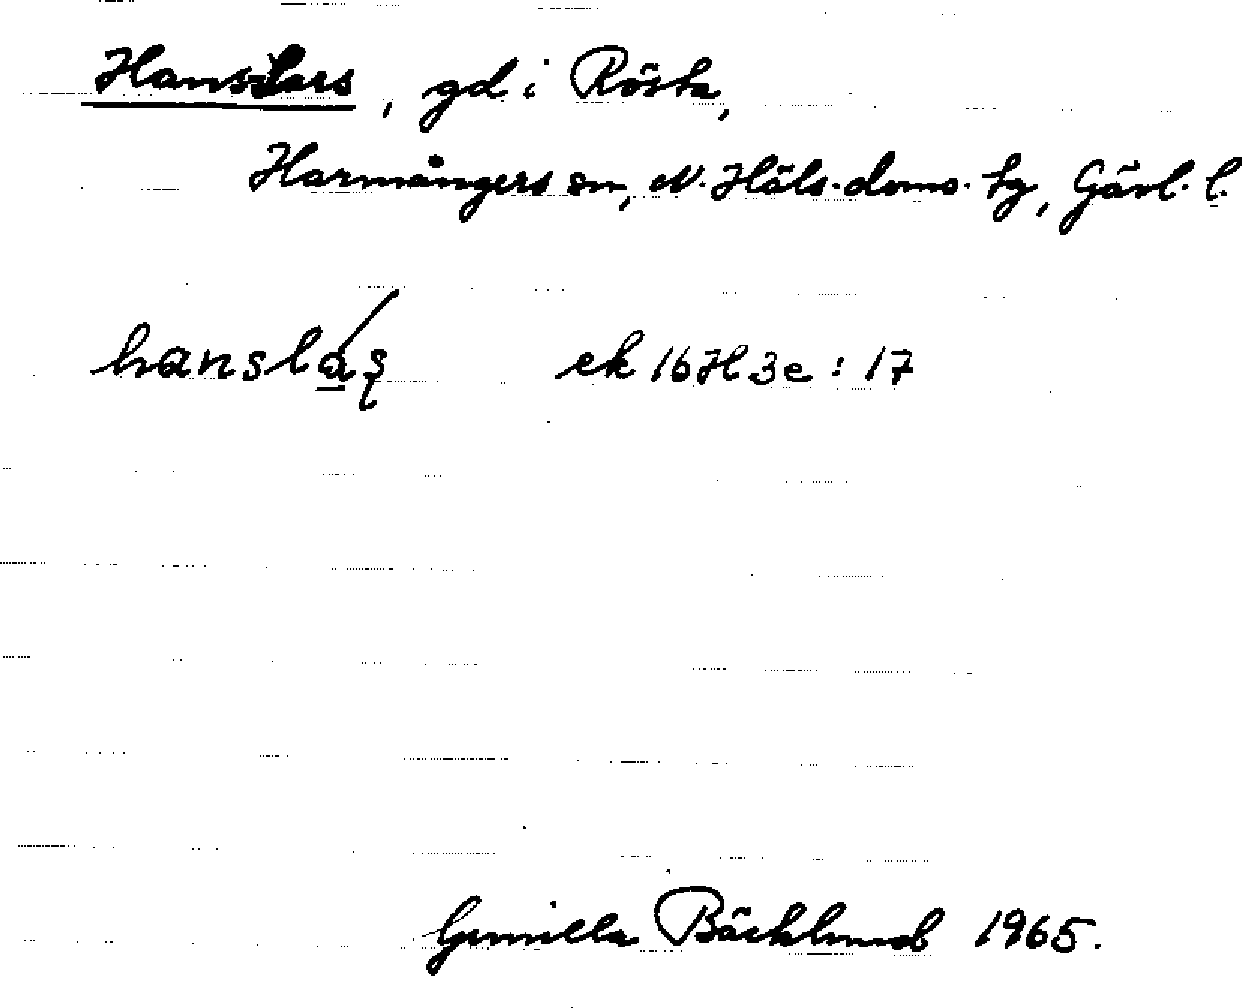 Hans-Lars, gd i Rösta,
Harmångers sn, N. Häls. doms. tg, Gävl. l.
hanslás̨ ek 16H3e:17
Gunilla Bäcklund 1965.